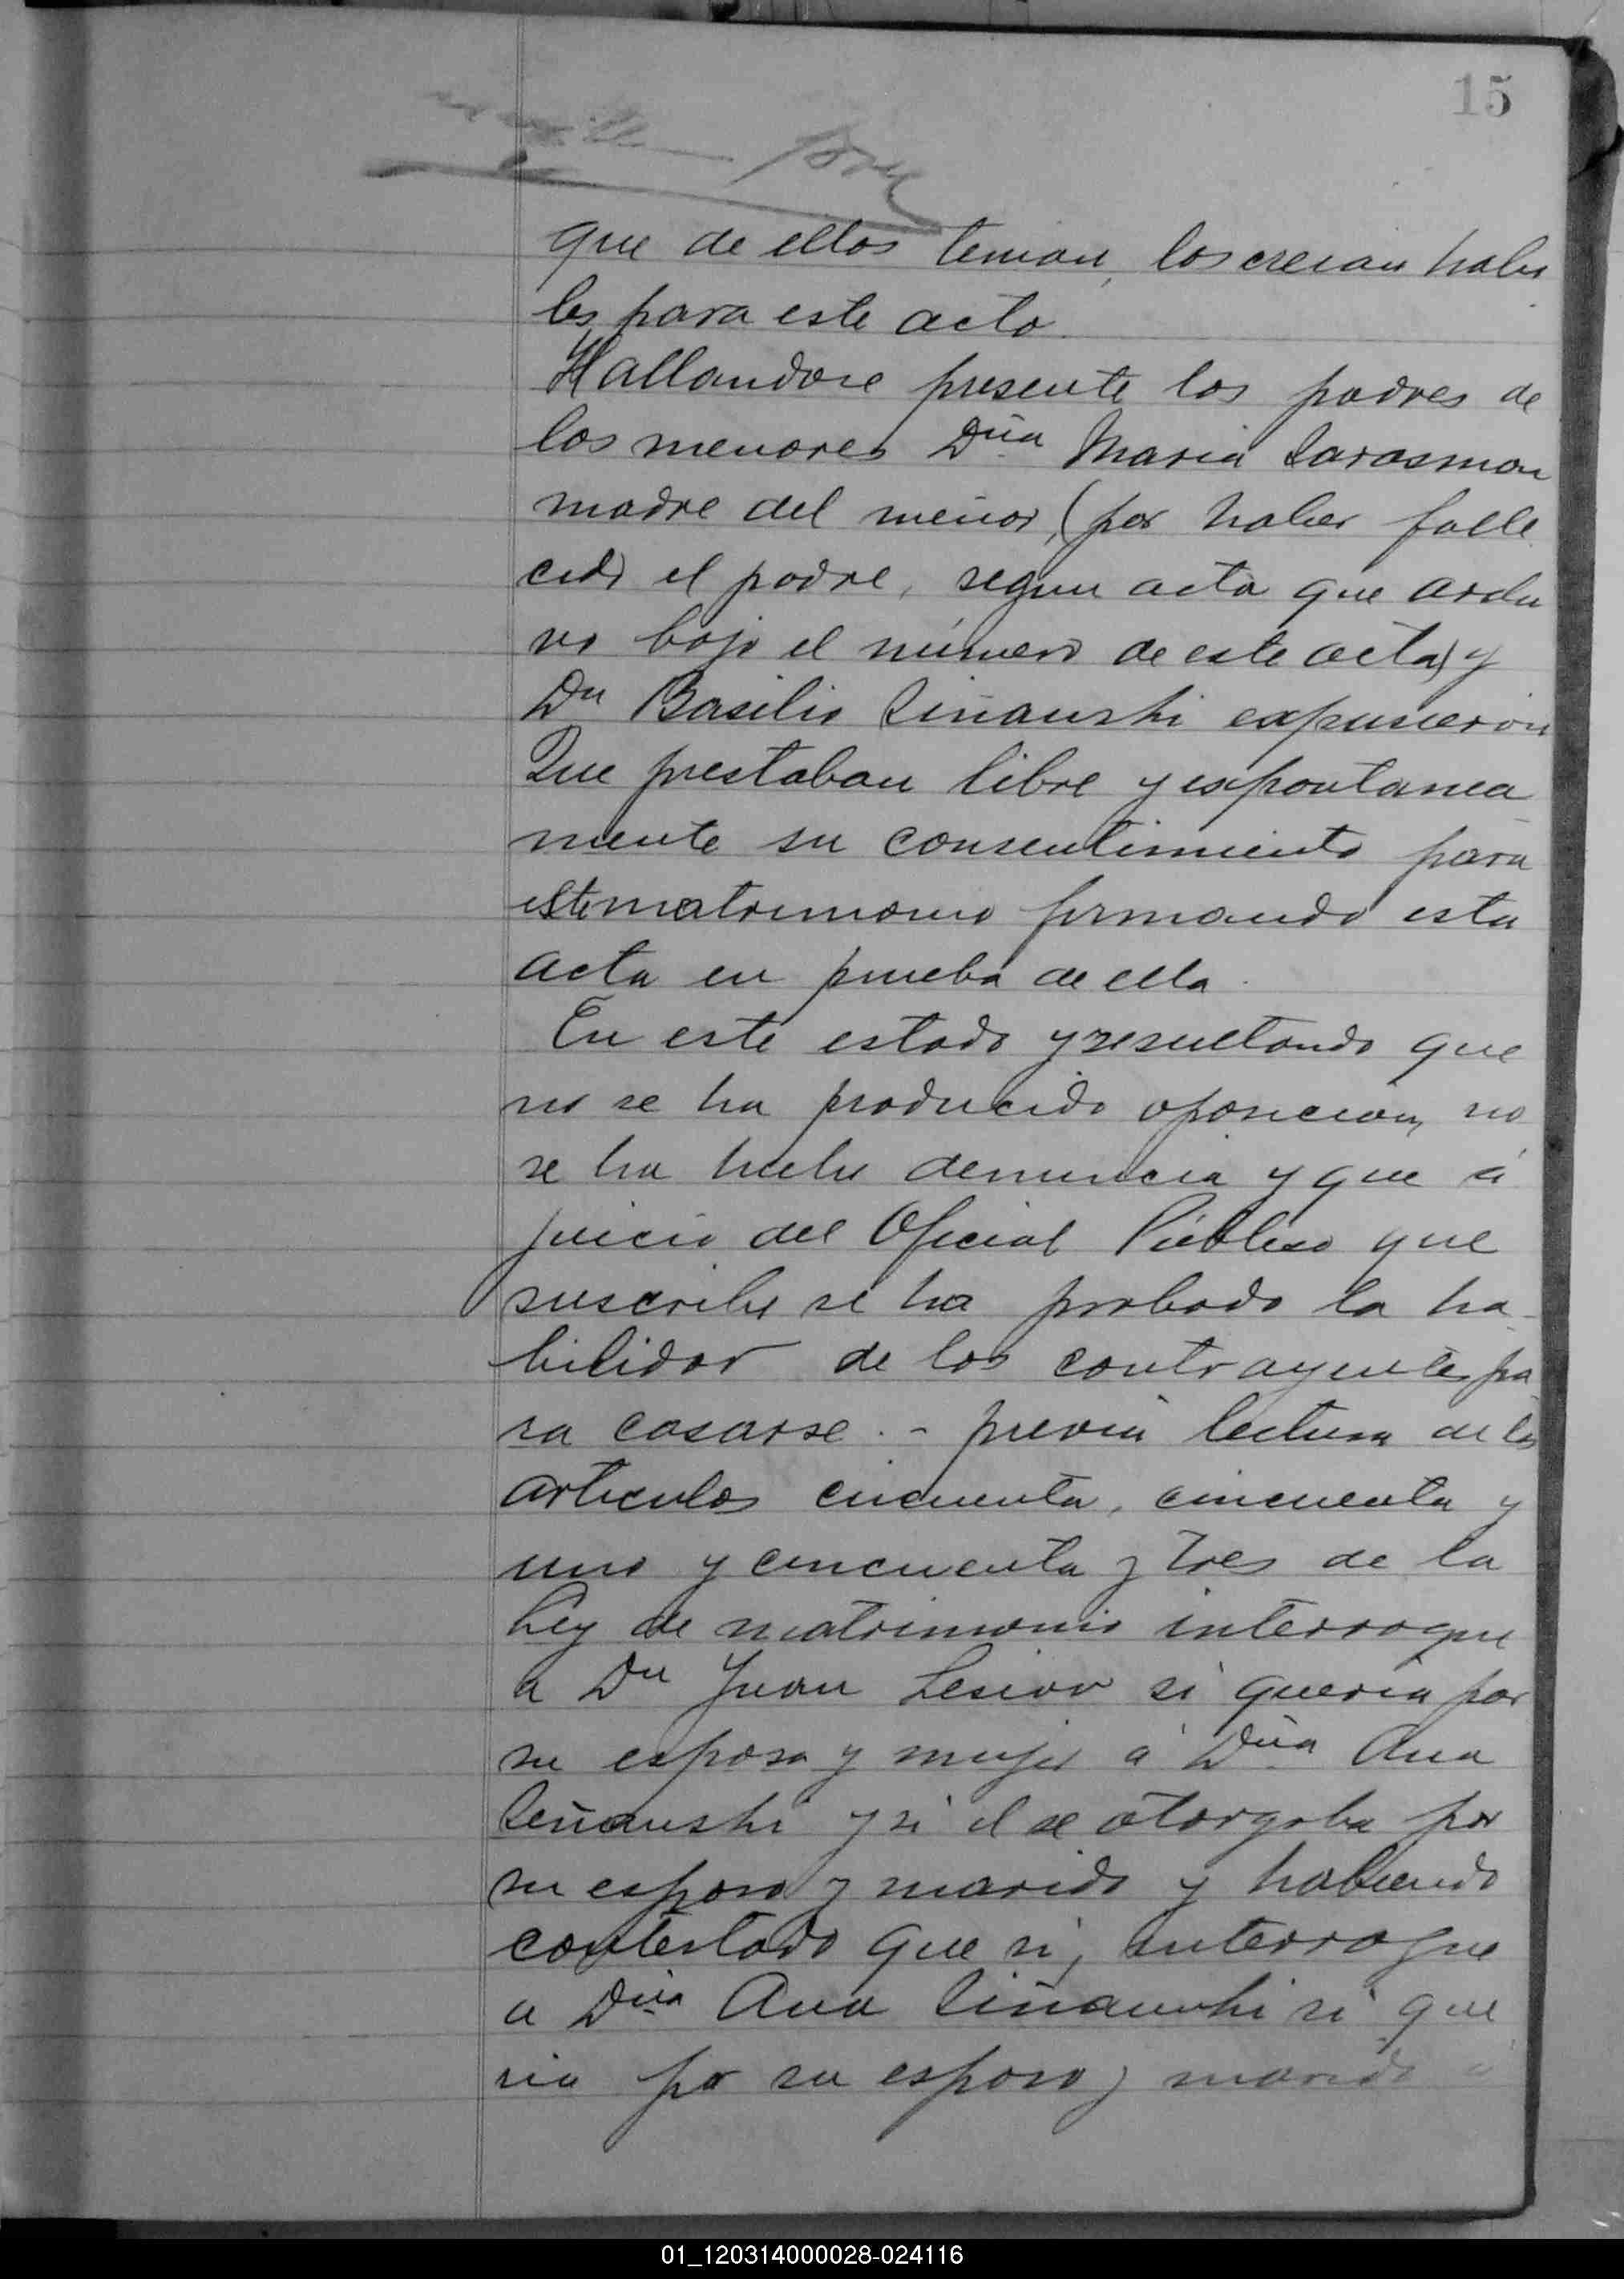 15
que de ellos tenian, los creian habi
les para este acto
Hallandose presente los padres de
los menores Dña Maria Sarasmon
madre del menor, (por haber falle
cido el padre, segun acta que archi
vo bajo el número de este acta) y
Dn Basilio Siñanski expusieron
Que prestaban libre y espontanea
mente su consentimiento para
este matrimonio firmando esta
acta en prueba de ella.
En este estado y resultando que
no se ha producido oposicion, no
se ha hecho denuncia y que á
juicio del Oficial Público que
suscribe se ha probado la ha
bilidad de los contrayentes pa
ra casarse. - previa lectura de los
articulos cincuenta, cincuenta y
uno y cincuenta y tres de la
Ley de matrimonio interrogue
a Dn Juan Lesiow si queria por
su esposa y mujer á Dña Ana
Siñanski y si el se otorgaba por
su esposo y marido y habiendo
contestado que si, interrogue
a Dña Ana Siñanski si que
ria por su esposo y marido a
01_120314000028-024116